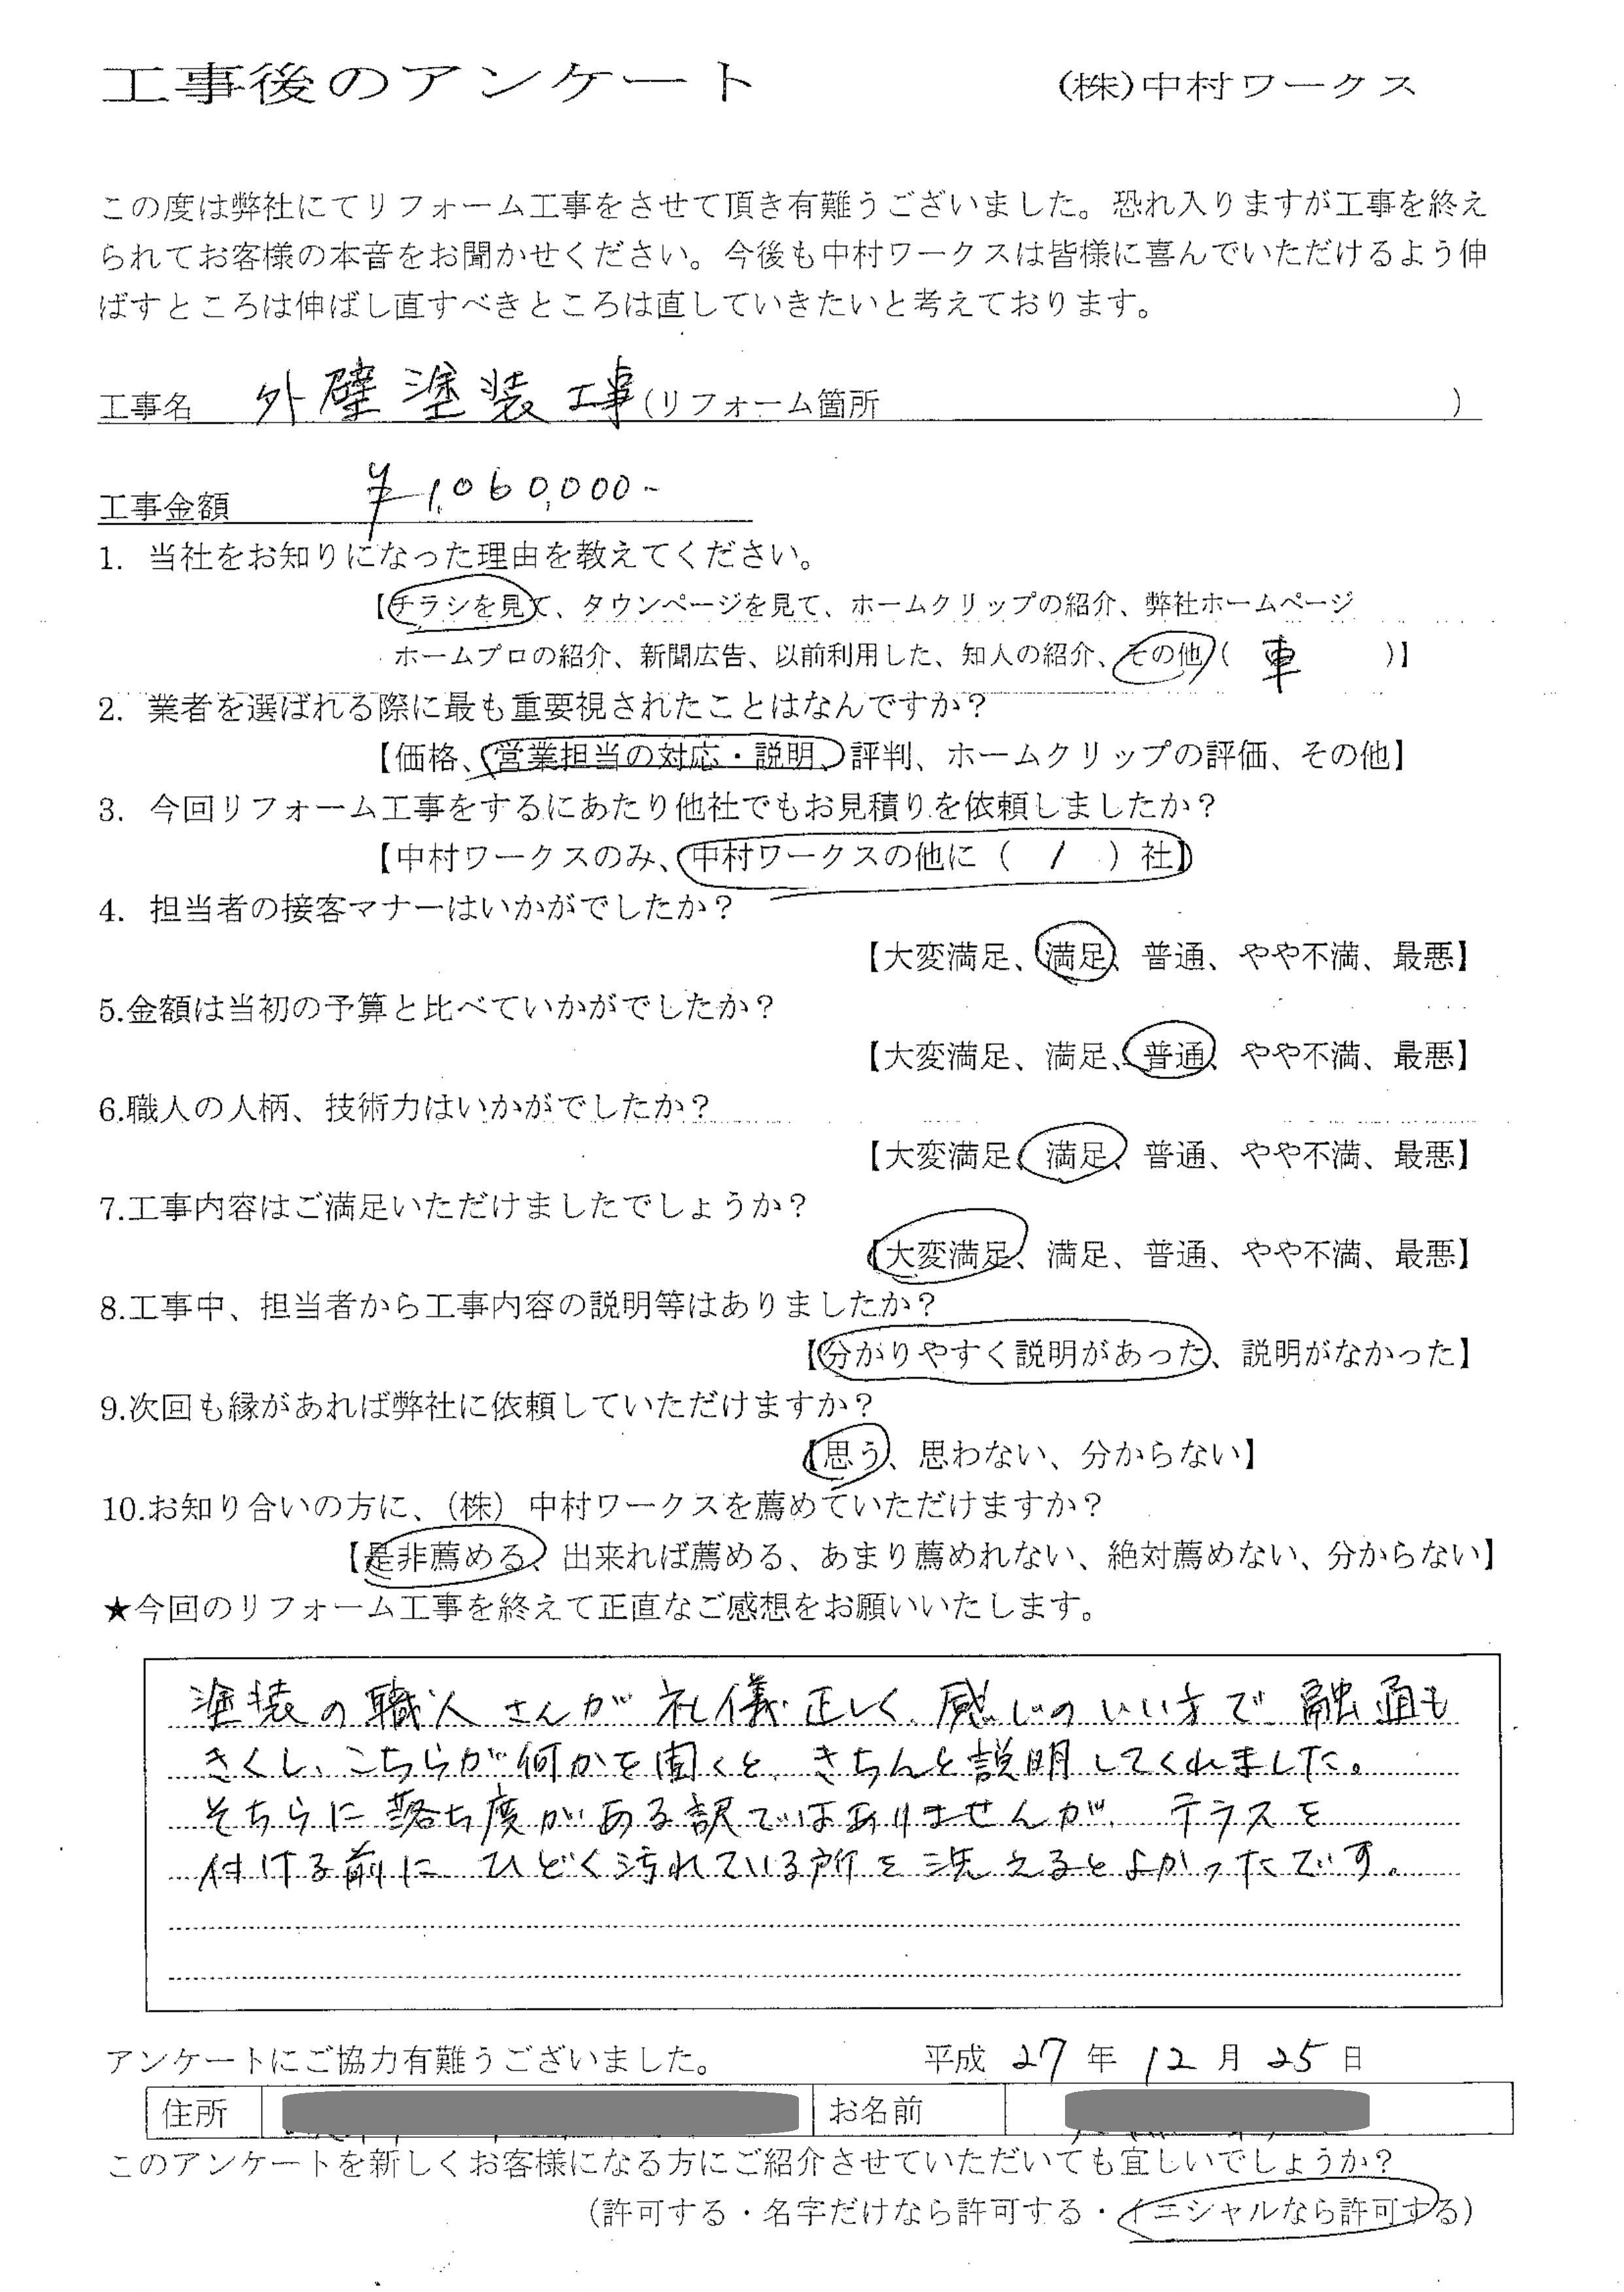 工事後のアンケート (株)中村ワークス
この度は弊社にてリフォーム工事をさせて頂き有難うございました。恐れ入りますが工事を終え
られてお客様の本音をお聞かせください。今後も中村ワークスは皆様に喜んでいただけるよう伸
ばすところは伸ばし直すべきところは直していきたいと考えております。
工事名 外壁塗装工事(リフォーム箇所 )
工事金額 ¥1,060,000-
1. 当社をお知りになった理由を教えてください。
【チラシを見て、タウンページを見て、ホームクリップの紹介、弊社ホームページ
ホームプロの紹介、新聞広告、以前利用した、知人の紹介、その他( 車 )】
2. 業者を選ばれる際に最も重要視されたことはなんですか?
【価格、営業担当の対応・説明、評判、ホームクリップの評価、その他】
3. 今回リフォーム工事をするにあたり他社でもお見積りを依頼しましたか?
【中村ワークスのみ、中村ワークスの他に( 1 )社】
4. 担当者の接客マナーはいかがでしたか?
【大変満足、満足、普通、やや不満、最悪】
5.金額は当初の予算と比べていかがでしたか?
【大変満足、満足、普通、やや不満、最悪】
6.職人の人柄、技術力はいかがでしたか?
【大変満足、満足、普通、やや不満、最悪】
7.工事内容はご満足いただけましたでしょうか?
【大変満足、満足、普通、やや不満、最悪】
8.工事中、担当者から工事内容の説明等はありましたか?
【分かりやすく説明があった、説明がなかった】
9.次回も縁があれば弊社に依頼していただけますか?
【思う、思わない、分からない】
10.お知り合いの方に、(株)中村ワークスを薦めていただけますか?
【是非薦める、出来れば薦める、あまり薦めれない、絶対薦めない、分からない】
★今回のリフォーム工事を終えて正直なご感想をお願いいたします。
塗装の職人さんが礼儀正しく、感じのいい方で融通も
きくし、こちらが何かを聞くと、きちんと説明してくれました。
そちらに落ち度がある訳ではありませんが、テラスを
付ける前に ひどく汚れている所を洗えるとよかったです。
アンケートにご協力有難うございました。 平成 27 年 12 月 25 日
住所 お名前
このアンケートを新しくお客様になる方にご紹介させていただいても宜しいでしょうか?
(許可する・名字だけなら許可する・イニシャルなら許可する)